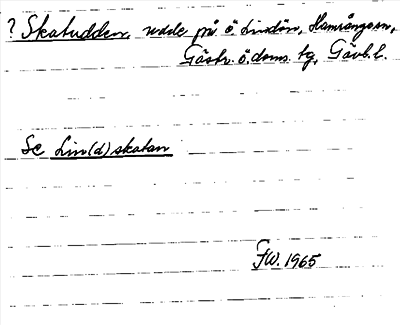 ? Skatudden, udde på ö. Lindön, Hamrånge sn,
Gästr. ö. doms. tg, Gävb. l.
Se Lin(d)skatan
FW. 1965